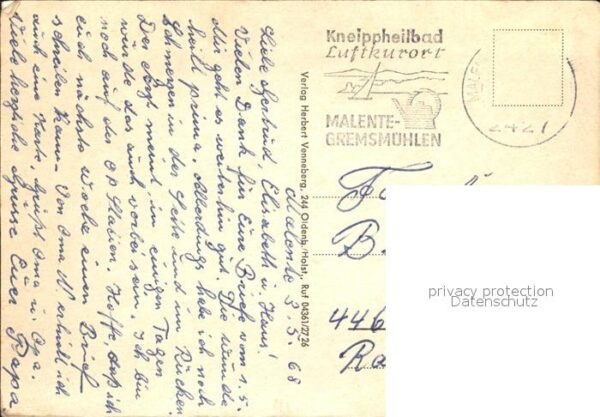 Malente 3.5.68
Liebe Gertrud, Elisabeth u. Hans!
Vielen Dank für Eure Briefe vom 1.5.
Mir geht es weiterhin gut. Die Wunde
heilt prima. Allerdings habe ich noch
Schmerzen in der Seite und im Rücken
Der Arzt meint in einigen Tagen
würde das auch vorbei sein. Ich bin
noch auf der OP Station. Hoffe, daß ich
euch nächste Woche einen Brief
schreiben kann. Von Oma W erhielt ich
auch eine Karte. Grüßt Oma u. Opa.
Viele herzliche Grüsse Euer Papa
Verlag Herbert Venneberg, 244 Oldenb./Holst., Ruf 04361/2726
Kneippheilbad
Luftkurort
MALENTE-
GREMSMÜHLEN
2427
B.
446
Ra
privacy protection
Datenschutz